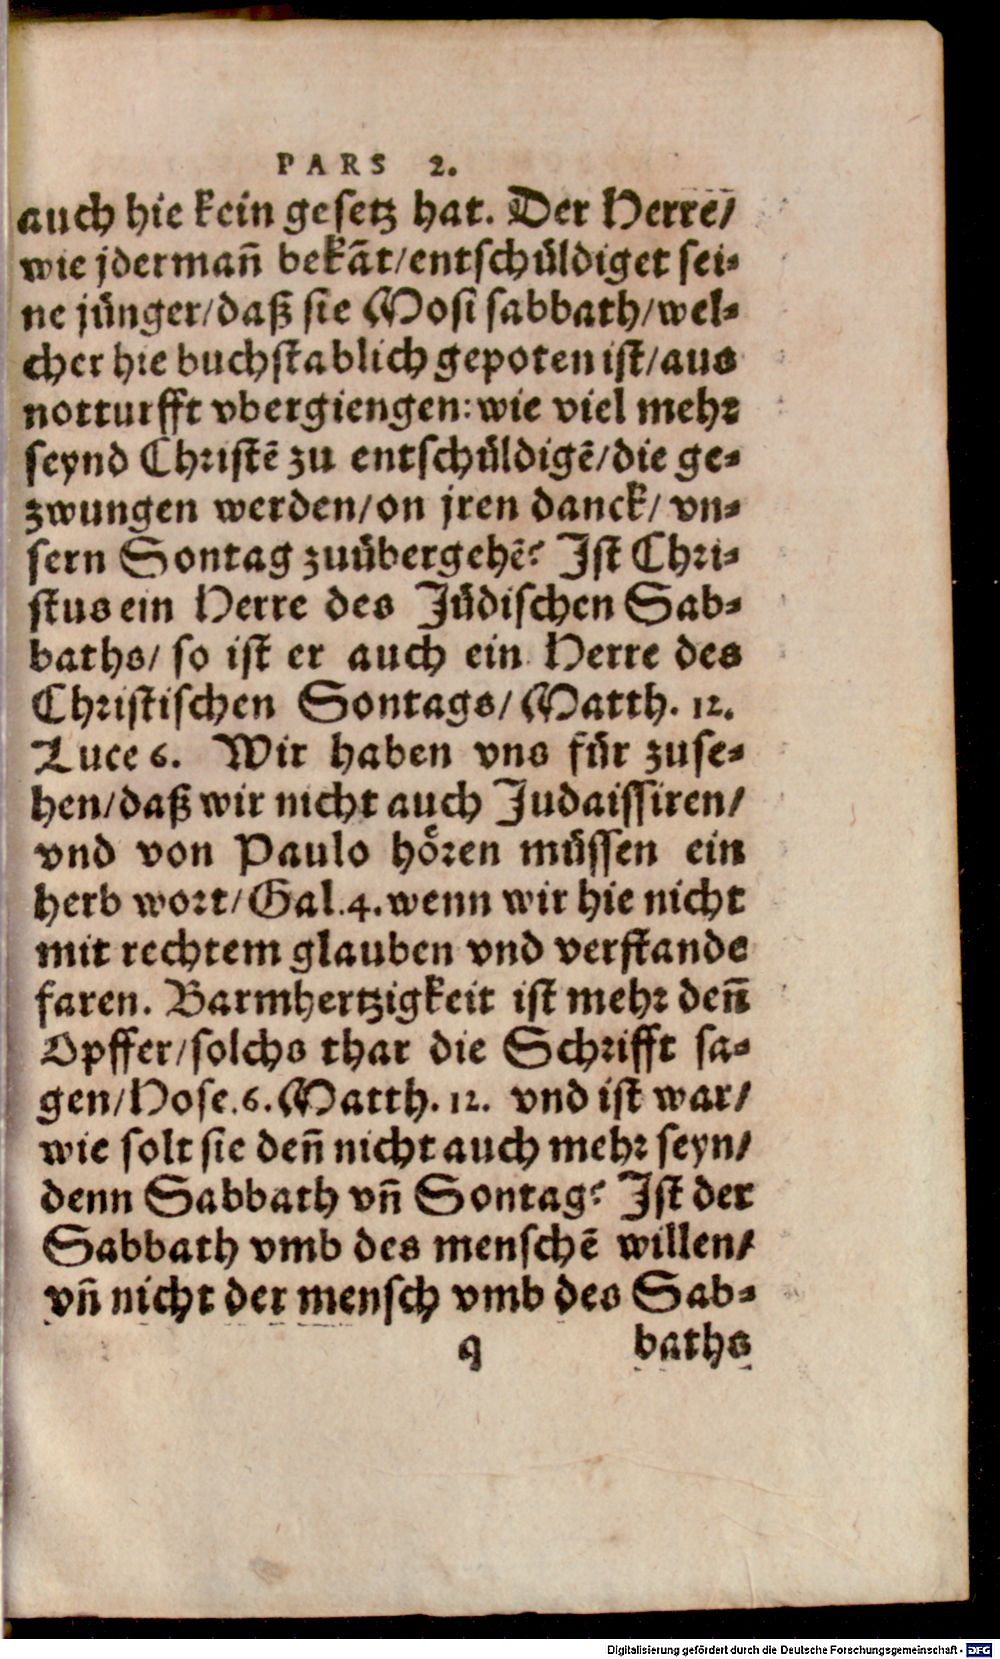 PARS 2.
auch hie kein gesetz hat. Der Herre/
wie jdermañ bekãt/entschüldiget sei-
ne jünger/daß sie Mosi sabbath/wel-
cher hie buchstablich gepoten ist/aus
notturfft vbergiengen: wie viel mehr
seynd Christẽ zu entschüldigẽ/die ge-
zwungen werden/on jren danck/ vn-
sern Sontag zuübergehẽ? Ist Chri-
stus ein Herre des Jüdischen Sab-
baths/ so ist er auch ein Herre des
Christischen Sontags/ Matth. 12.
Luce 6. Wir haben vns für zuse-
hen/daß wir nicht auch Judaissiren/
vnd von Paulo hören müssen ein
herb wort/Gal.4.wenn wir hie nicht
mit rechtem glauben vnd verstande
faren. Barmhertzigkeit ist mehr deñ
Opffer/solchs thar die Schrifft sa-
gen/Hose.6.Matth. 12. vnd ist war/
wie solt sie deñ nicht auch mehr seyn/
denn Sabbath vñ Sontag? Ist der
Sabbath vmb des menschẽ willen/
vñ nicht der mensch vmb des Sab-
q baths
Digitalisierung gefördert durch die Deutsche Forschungsgemeinschaft - DFG